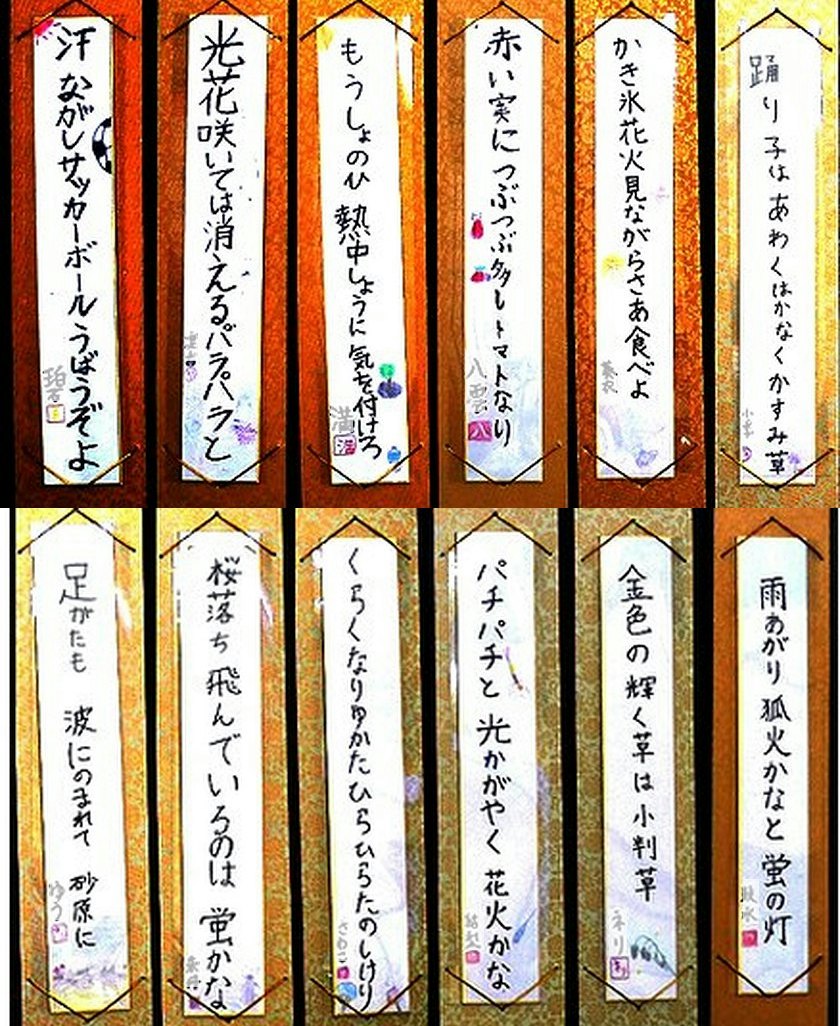 踊り子はあわくはかなくかすみ草
かき氷花火見ながらさあ食べよ
赤い実につぶつぶ多しトマトなり
八雲
八
もうしょのひ 熱中しょうに 気を付けろ
満
光花咲いては消えるパラパラと
汗ながしサッカーボールうばうぞよ
雨あがり 狐火かなと 蛍の灯
金色の輝く草は小判草
ネリ
パチパチと 光かがやく 花火かな
くらくなりゆかたひらひらたのしけり
さわこ
桜落ち 飛んでいるのは 蛍かな
足がたも 波にのまれて 砂原に
ゆう